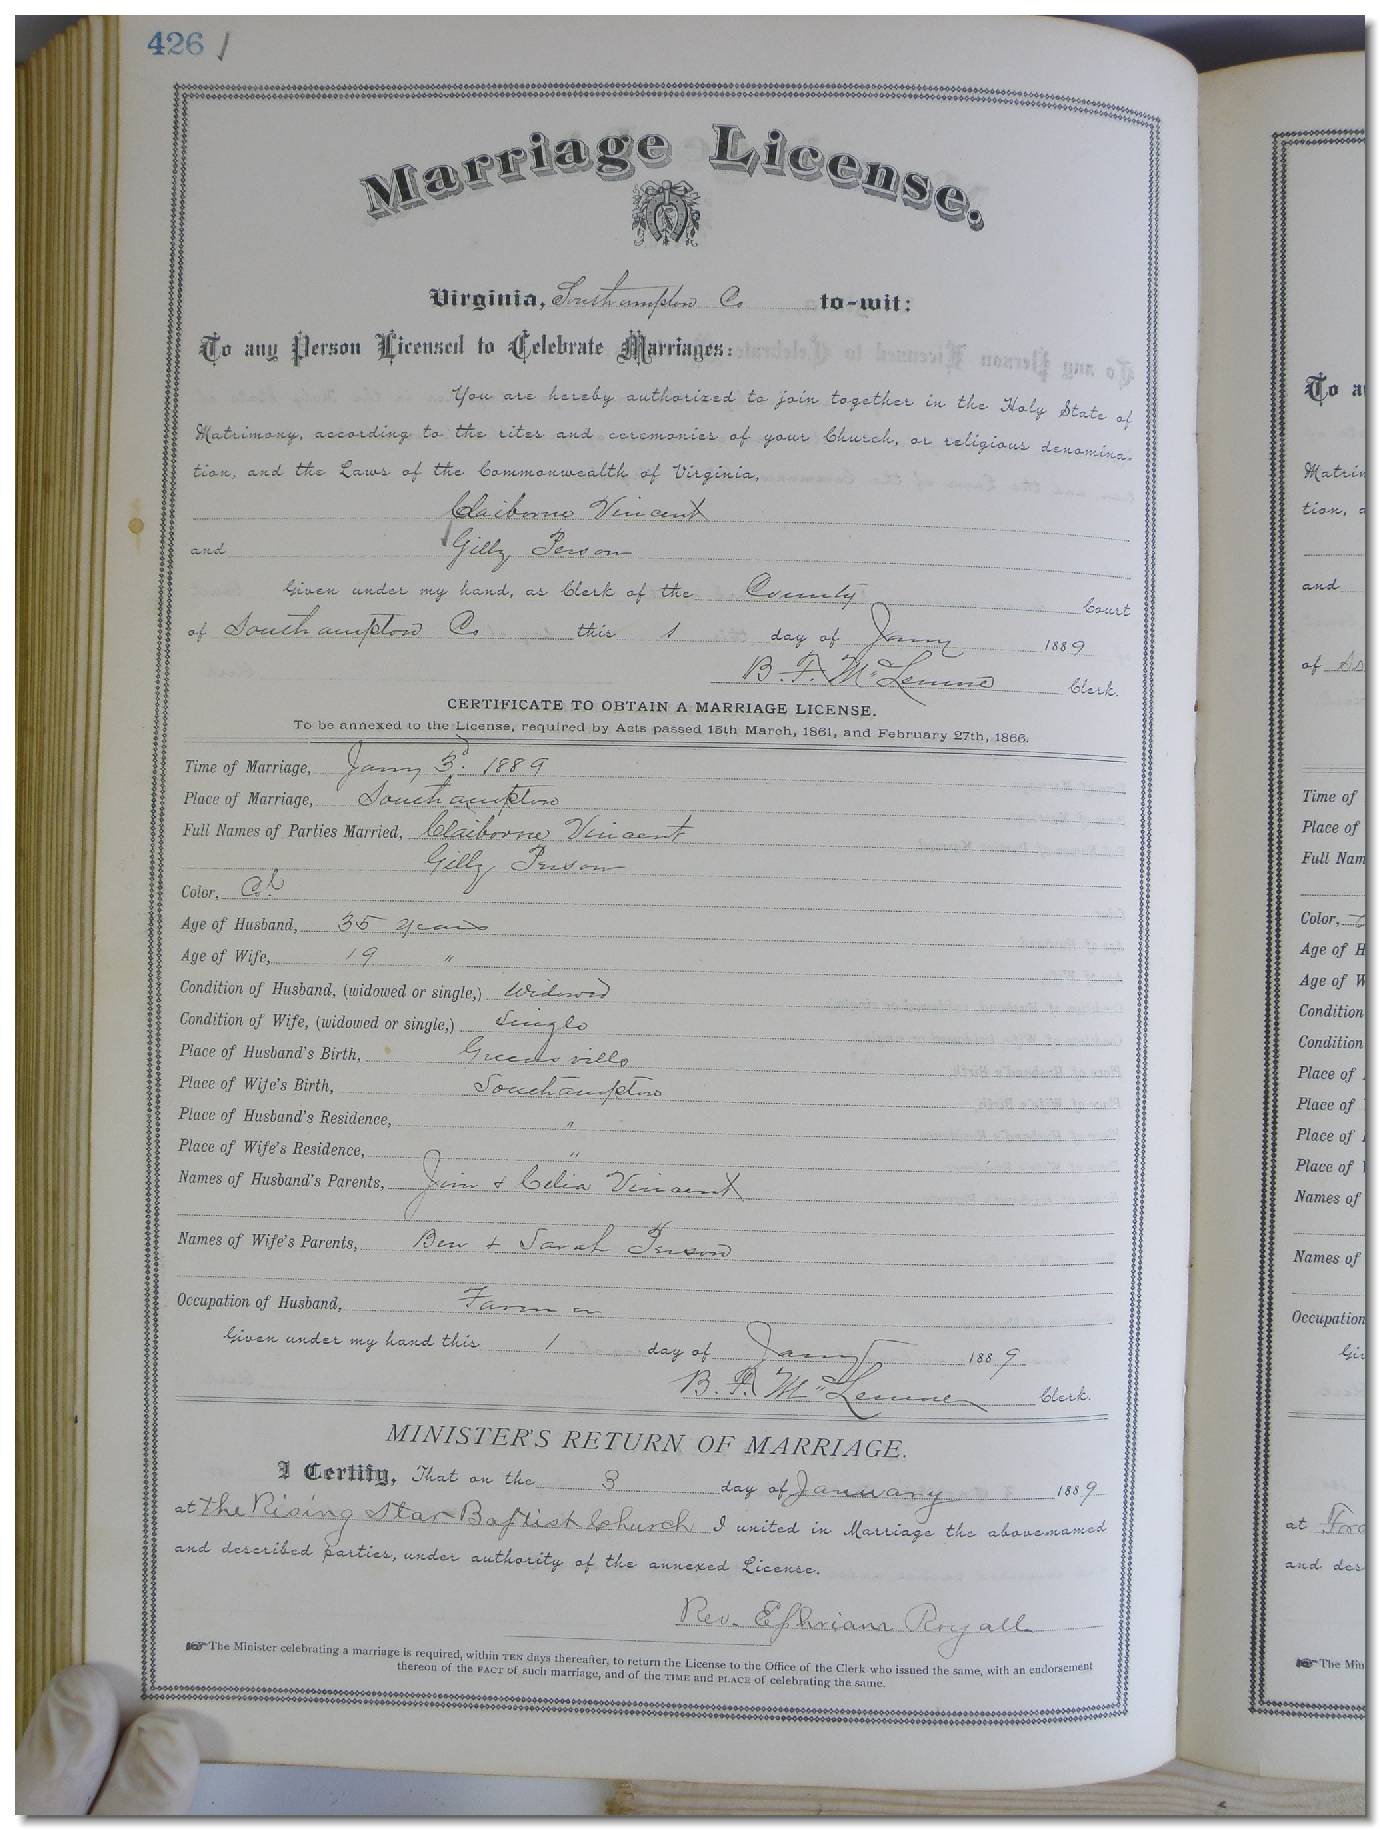 426 /
Marriage License.
Virginia, Southampton Co to-wit:
To any Person Licensed to Celebrate Marriages:
You are hereby authorized to join together in the Holy State of
Matrimony, according to the rites and ceremonies of your Church, or religious denomina-
tion, and the Laws of the Commonwealth of Virginia,
Claiborne Vincent
and Gilly Person
Given under my hand, as Clerk of the County Court
of Southampton Co this 1 day of Jany 1889
B. F. McLemore Clerk.
CERTIFICATE TO OBTAIN A MARRIAGE LICENSE.
To be annexed to the License, required by Acts passed 15th March, 1861, and February 27th, 1866.
Time of Marriage, Jany 3d. 1889
Place of Marriage, Southampton
Full Names of Parties Married, Claiborne Vincent
Gilly Person
Color, Col
Age of Husband, 35 years
Age of Wife, 19 "
Condition of Husband, (widowed or single,) Widowed
Condition of Wife, (widowed or single,) Single
Place of Husband's Birth, Greensville
Place of Wife's Birth, Southampton
Place of Husband's Residence, "
Place of Wife's Residence, "
Names of Husband's Parents, Jim & Celia Vincent
Names of Wife's Parents, Ben & Sarah Person
Occupation of Husband, Farmer
Given under my hand this 1 day of Jany 1889
B. F. McLemore Clerk.
MINISTER'S RETURN OF MARRIAGE.
I Certify, That on the 3 day of January 1889
at the Rising Star Baptist Church I united in Marriage the above-named
and described parties, under authority of the annexed License.
Rev. Ephriam Royall
The Minister celebrating a marriage is required, within TEN days thereafter, to return the License to the Office of the Clerk who issued the same, with an endorsement
thereon of the FACT of such marriage, and of the TIME and PLACE of celebrating the same.
To a
Matrim
tion, a
and
of
Time of
Place of
Full Nam
Color,
Age of H
Age of W
Condition
Condition
Place of
Place of
Place of
Place of
Names of
Names of
Occupation
Giv
at
and des
The Min